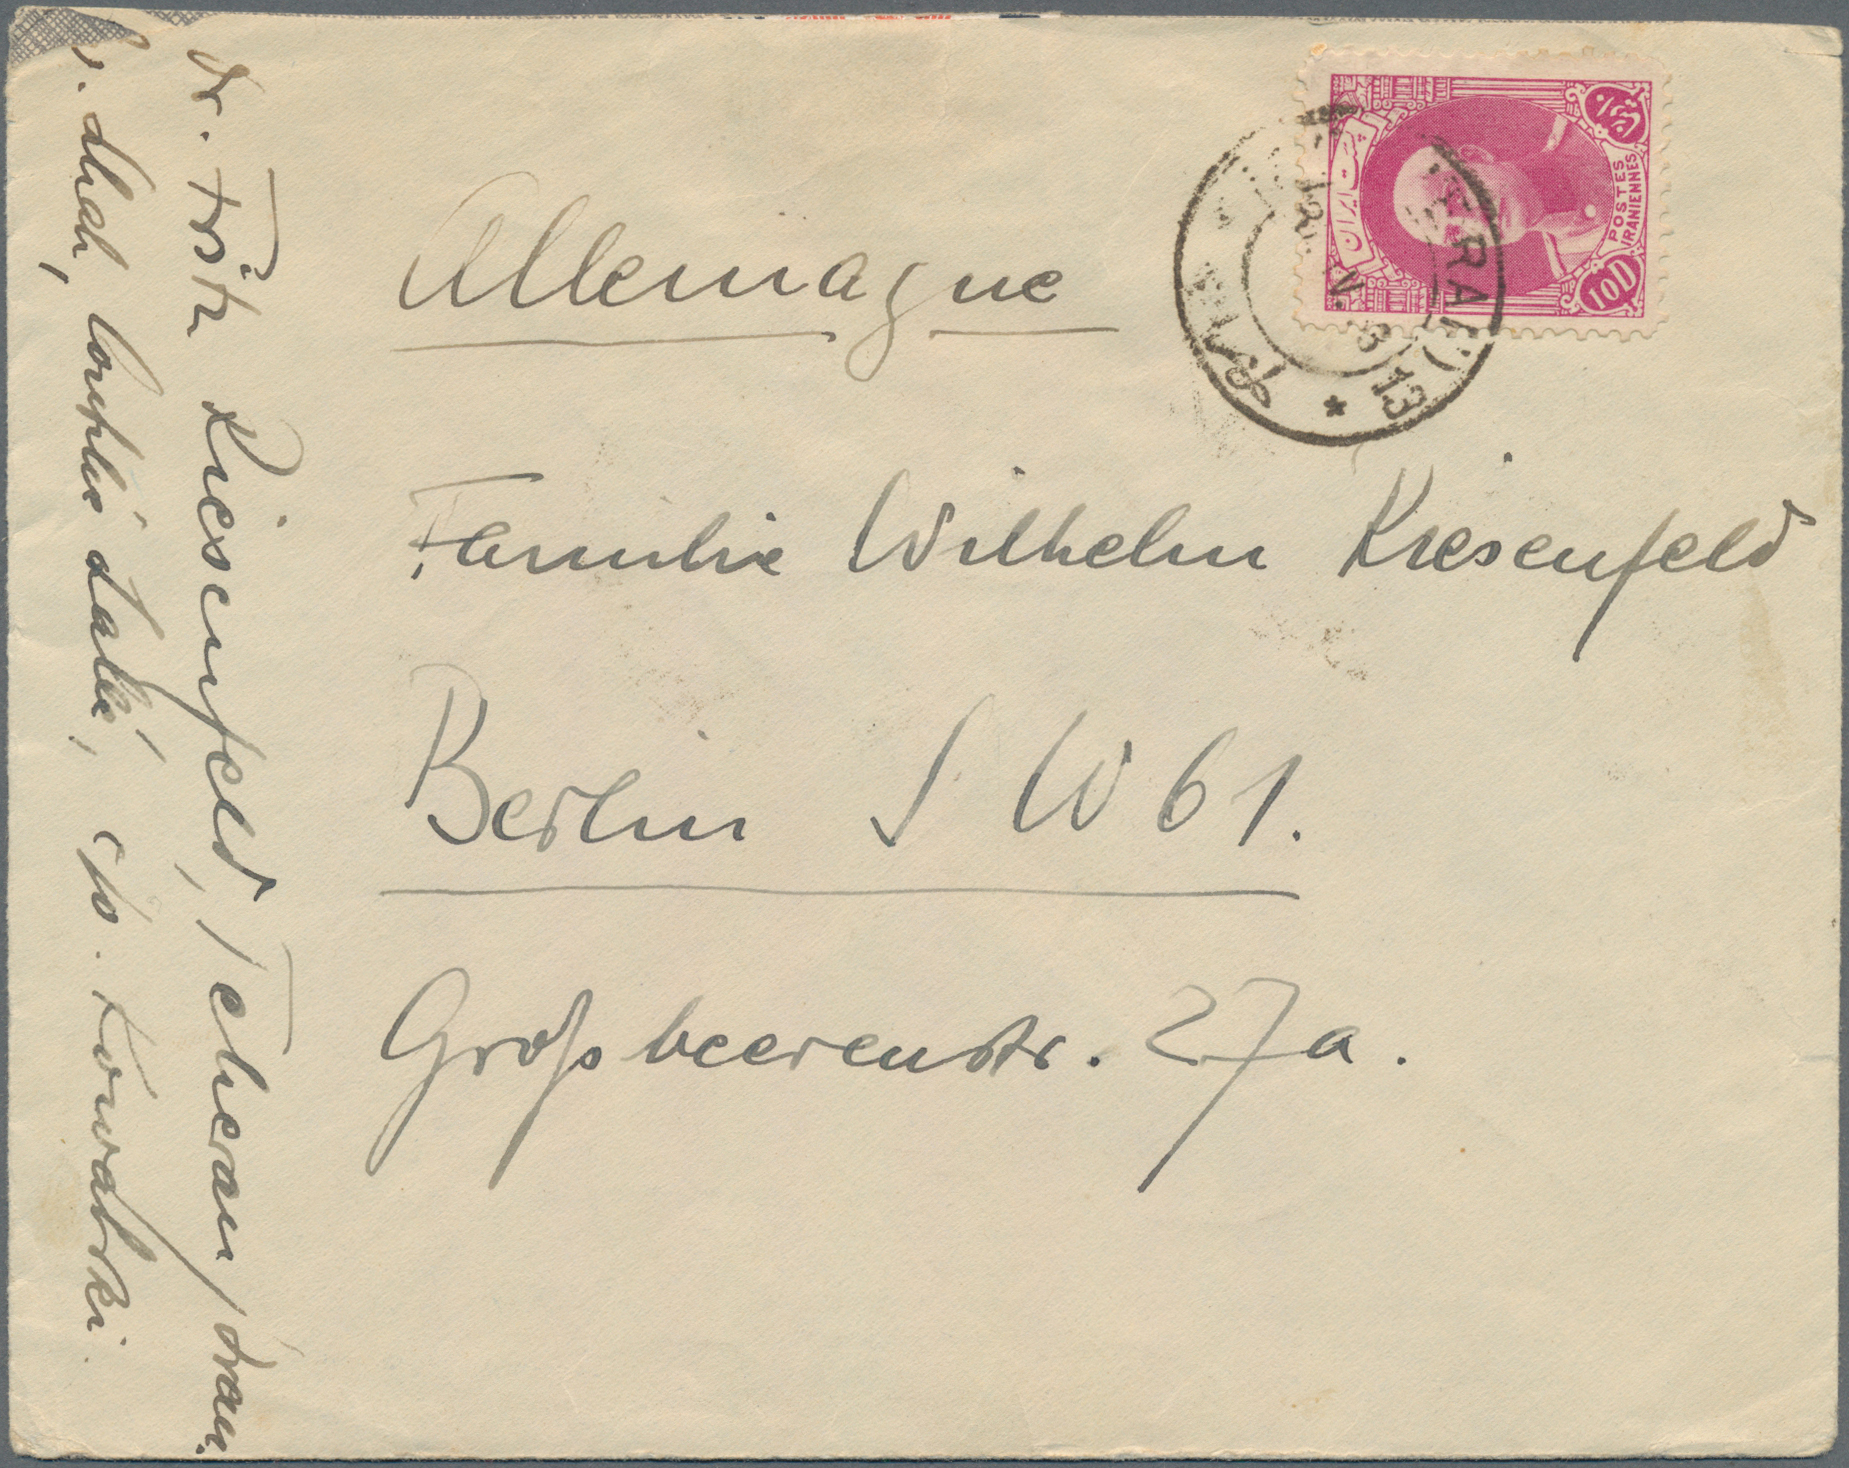 Allemagne
Familie Wilhelm Riesenfeld
Berlin SW 61.
Großbeerenstr. 27a.
Dr. Fritz Riesenfeld, Teheran/Iran.
c/o. Kowalski.
پست ایران
POSTES
IRANIENNES
10D
13
*